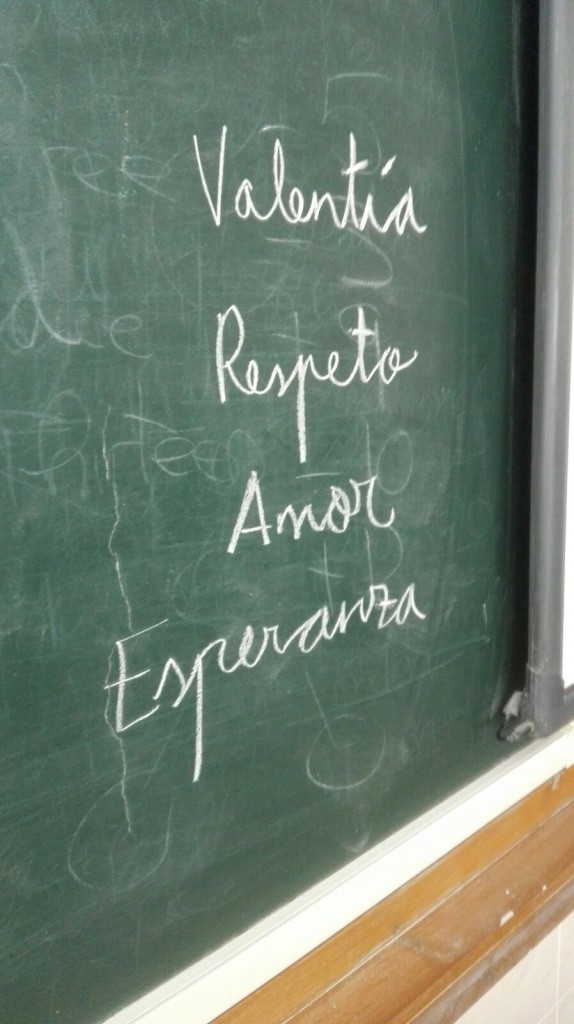 Valentía
Respeto
Amor
Esperanza